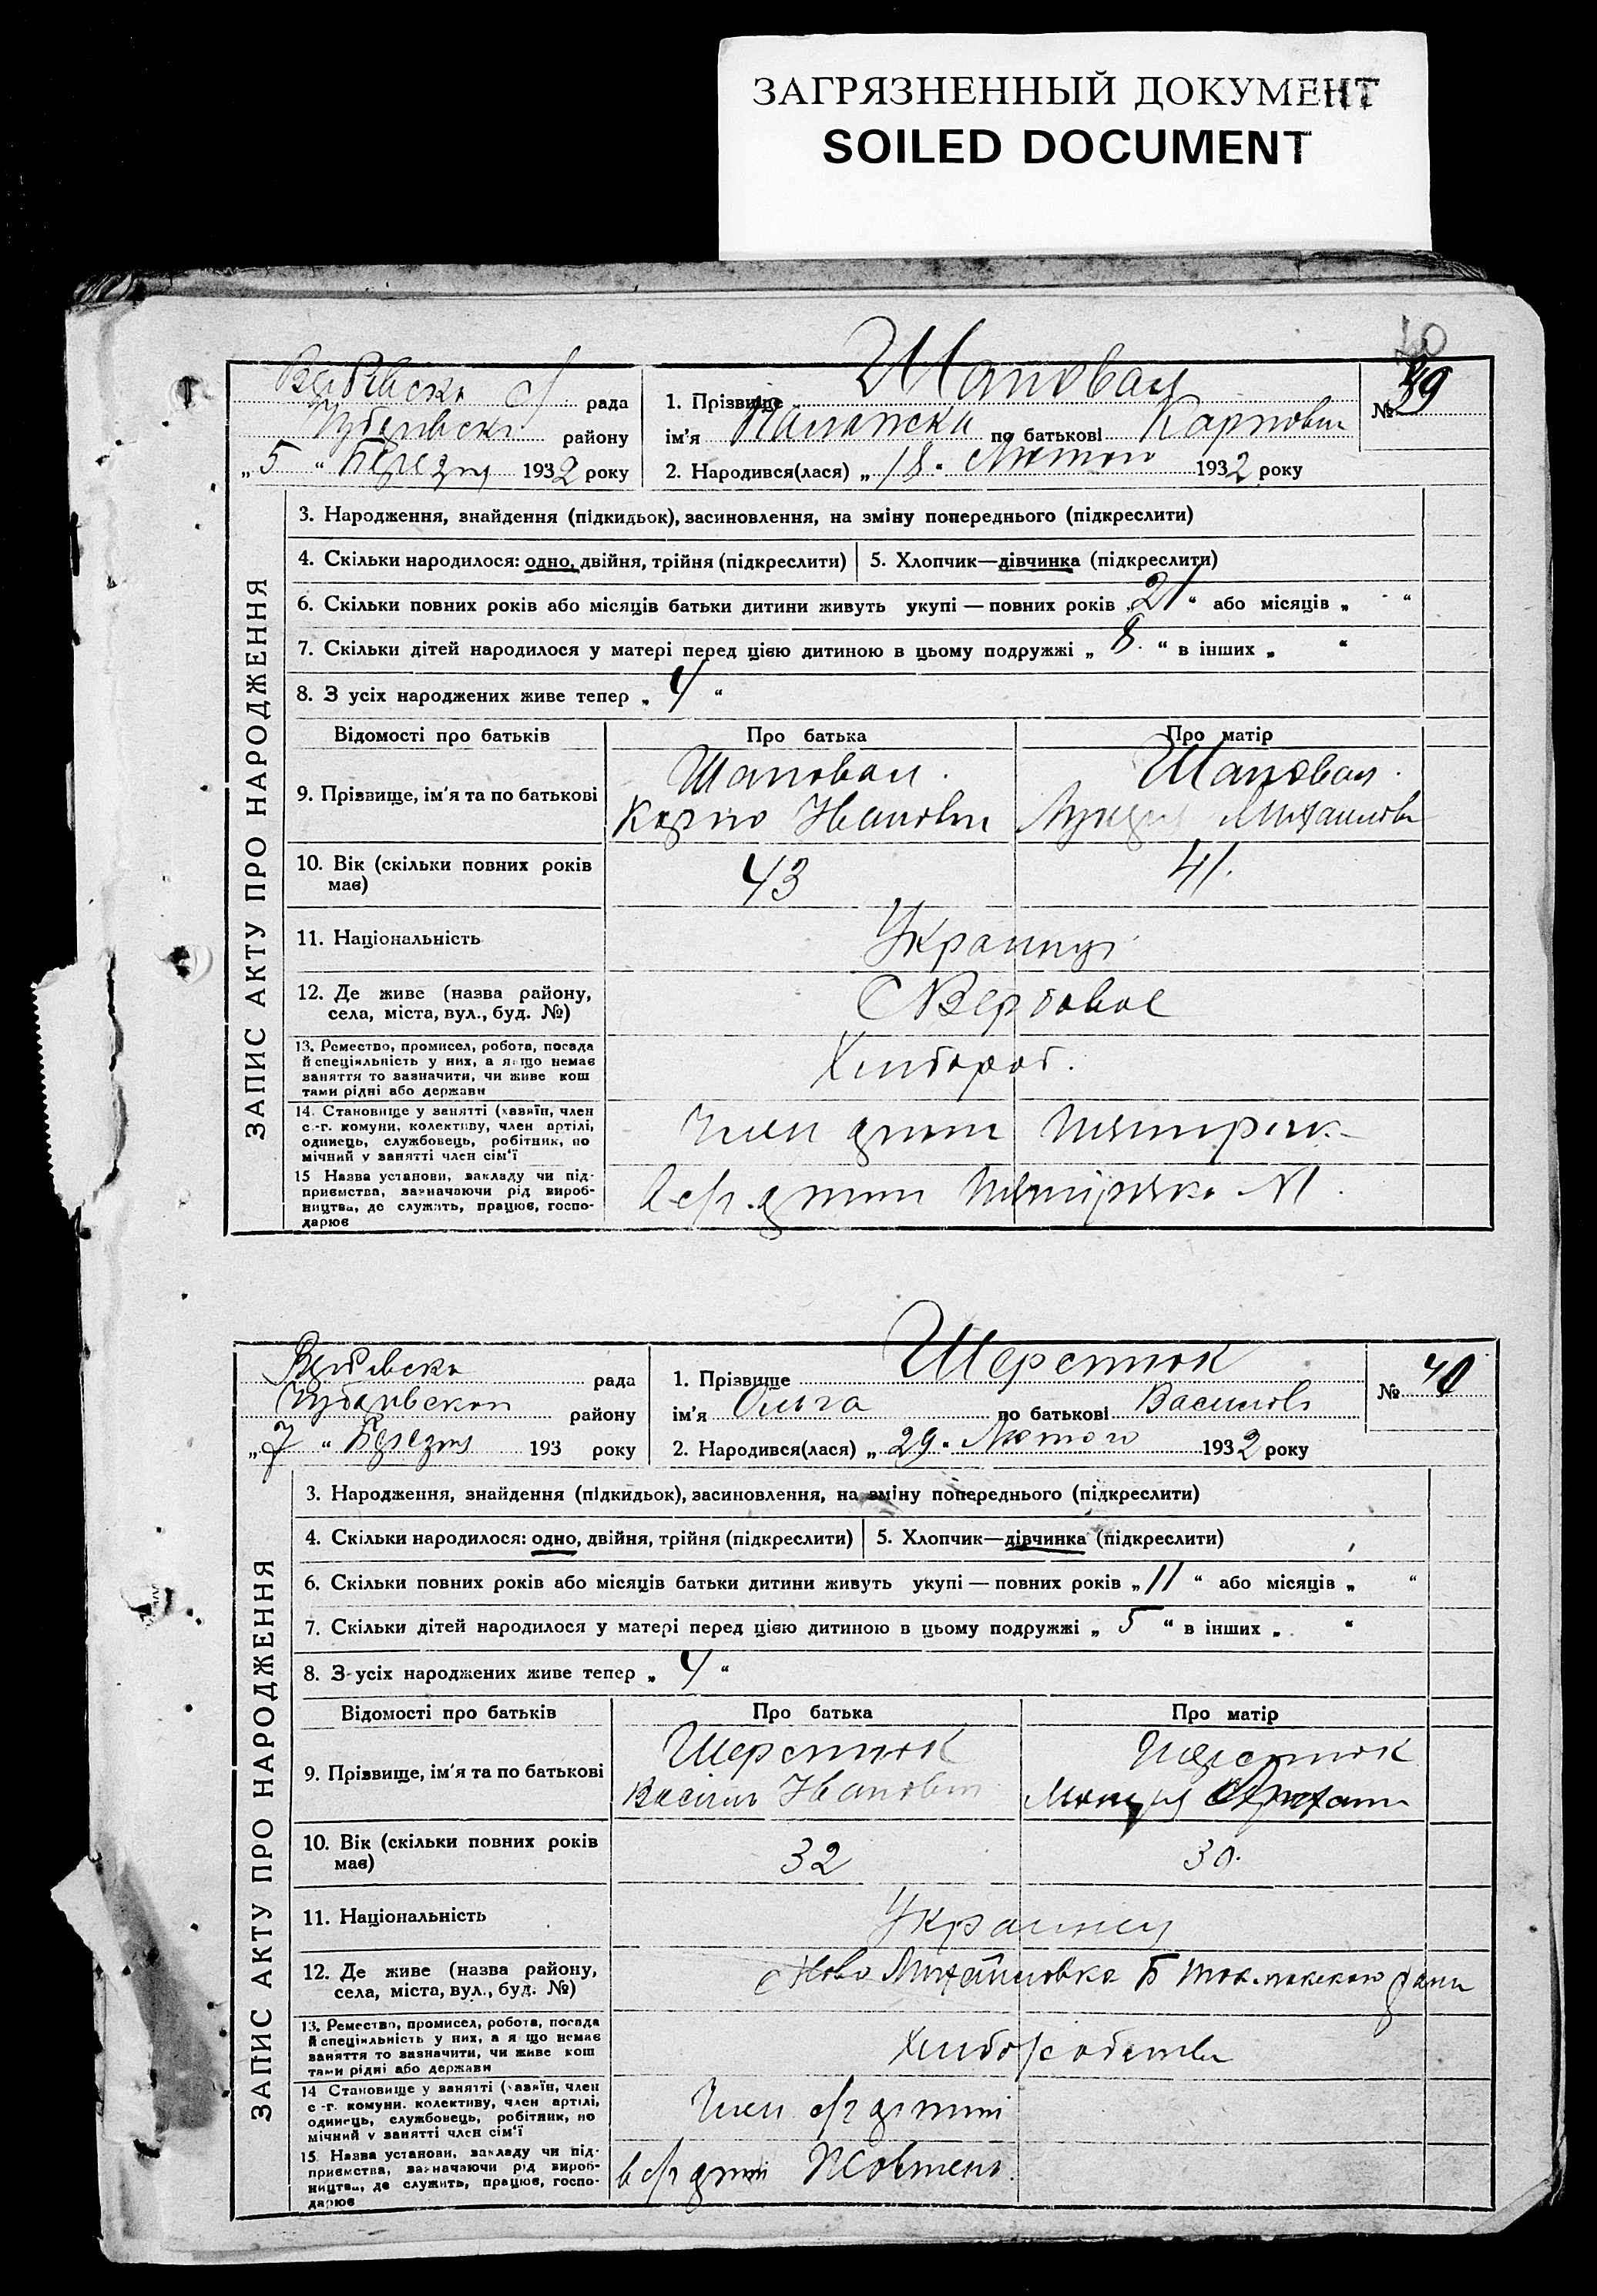 ЗАГРЯЗНЕННЫЙ ДОКУМЕНТ
SOILED DOCUMENT
ЗАПИС АКТУ ПРО НАРОДЖЕННЯ
рада
району
„5“ Березня 1932 року
1. Прізвище Шаповал
ім'я по батькові Карповна
2. Народився(лася) „18“ Лютого 1932 року
№ 39
3. Народження, знайдення (підкидьок), засиновлення, на зміну попереднього (підкреслити)
4. Скільки народилося: одно, двійня, трійня (підкреслити)
5. Хлопчик—дівчинка (підкреслити)
6. Скільки повних років або місяців батьки дитини живуть укупі — повних років „21“ або місяців „ “
7. Скільки дітей народилося у матері перед цією дитиною в цьому подружжі „8“ в інших „ “
8. З усіх народжених живе тепер „4“
Відомості про батьків
Про батька
Про матір
9. Прізвище, ім'я та по батькові
Шаповал
Карпо Іванович
Шаповал
10. Вік (скільки повних років
має)
43
41.
11. Національність
12. Де живе (назва району,
села, міста, вул., буд. №)
С Вербовое
13. Ремество, промисел, робота, посада
й спеціяльність у них, а якщо немає
заняття то зазначити, чи живе кош
тами рідні або держави
Хлибороб.
14. Становище у занятті (хазяїн, член
с.-г. комуни, колективу, член артілі,
одинець, службовець, робітник, по
мічний у занятті член сім'ї
Член артили
15 Назва установи, закладу чи під-
приємства, зазначаючи рід вироб-
ництва, де служить, працює, госпо-
дарює
ЗАПИС АКТУ ПРО НАРОДЖЕННЯ
рада
району
„7“ Березня 193 року
1. Прізвище Шерстюк
ім'я Ольга по батькові Василовн
2. Народився(лася) „29“ Лютого 1932 року
№ 40
3. Народження, знайдення (підкидьок), засиновлення, на зміну попереднього (підкреслити)
4. Скільки народилося: одно, двійня, трійня (підкреслити)
5. Хлопчик—дівчинка (підкреслити)
6. Скільки повних років або місяців батьки дитини живуть укупі — повних років „11“ або місяців „ “
7. Скільки дітей народилося у матері перед цією дитиною в цьому подружжі „5“ в інших „ “
8. З усіх народжених живе тепер „4“
Відомості про батьків
Про батька
Про матір
9. Прізвище, ім'я та по батькові
Шерстюк
Василь Іванович
Шерстюк
10. Вік (скільки повних років
має)
32
30.
11. Національність
12. Де живе (назва району,
села, міста, вул., буд. №)
с Ново Михайловка Б
13. Ремество, промисел, робота, посада
й спеціяльність у них, а якщо немає
заняття то зазначити, чи живе кош
тами рідні або держави
14 Становище у занятті (хазяїн, член
с.-г. комуни, колективу, член артілі,
одинець, службовець, робітник, по
мічний у занятті член сім'ї
Член с/г артили
15. Назва установи, закладу чи під-
приємства, зазначаючи рід вироб-
ництва, де служить, працює, госпо-
дарює
в с/г артили Жовтень.